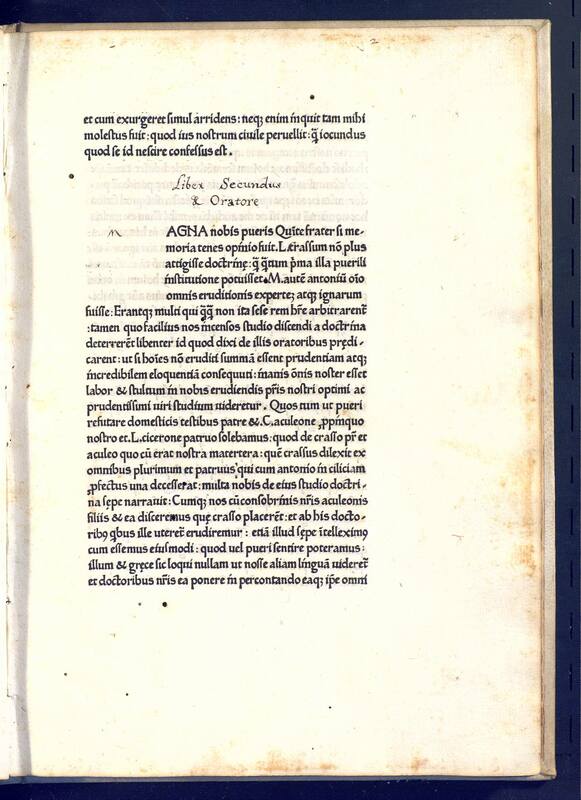 2
et cum exurgeret simul arridens: neq; enim inquit tam mihi
molestus fuit: quod ius nostrum ciuile peruellit: q̃ iocundus
quod se id nescire confessus est.
Liber Secundus
de Oratore
m AGNA nobis pueris Quĩte frater si me-
moria tenes opinio fuit. L. crassum nõ plus
attigisse doctrinę: q̃ q̃tum p̃ma illa puerili
institutione potuisset. M. autẽ antoniũ oĩo
omnis eruditionis experte; atq; ignarum
fuisse: Erantq; multi qui q̃q̃ non ita sese rem hr̃e arbitrarent̃
: tamen quo facilius nos incensos studio discendi a doctrina
deterrerent libenter id quod dixi de illis oratoribus prędi-
carent: ut si hoĩes nõ eruditi summã essent prudentiam atq;
incredibilem eloquentiã consequuti: inanis õnis noster esset
labor & stultum in nobis erudiendis pr̃is nostri optimi ac
prudentissimi uiri studium uideretur. Quos tum ut pueri
refutare domesticis testibus patre &. C. aculeone ꝓpinquo
nostro et. L. cicerone patruo solebamus: quod de crasso pr̃ et
aculeo quo cũ erat nostra matertera: quẽ crassus dilexit ex
omnibus plurimum et patruus qui cum antonio in ciliciam
ꝓfectus una decesserat: multa nobis de eius studio doctri-
na sępe narrauit: Cumq; nos cũ consobrinis nr̃is aculeonis
filiis & ea disceremus quę crasso placerẽt: et ab his docto-
ribꝰ qbus ille uteret̃ erudiremur: etiã illud sępe ĩtelleximꝰ
cum essemus eiusmodi: quod uel pueri sentire poteramus:
illum & gręce sic loqui nullam ut nosse aliam linguã uideret̃
et doctoribus nr̃is ea ponere in percontando eaq; ip̃e omni